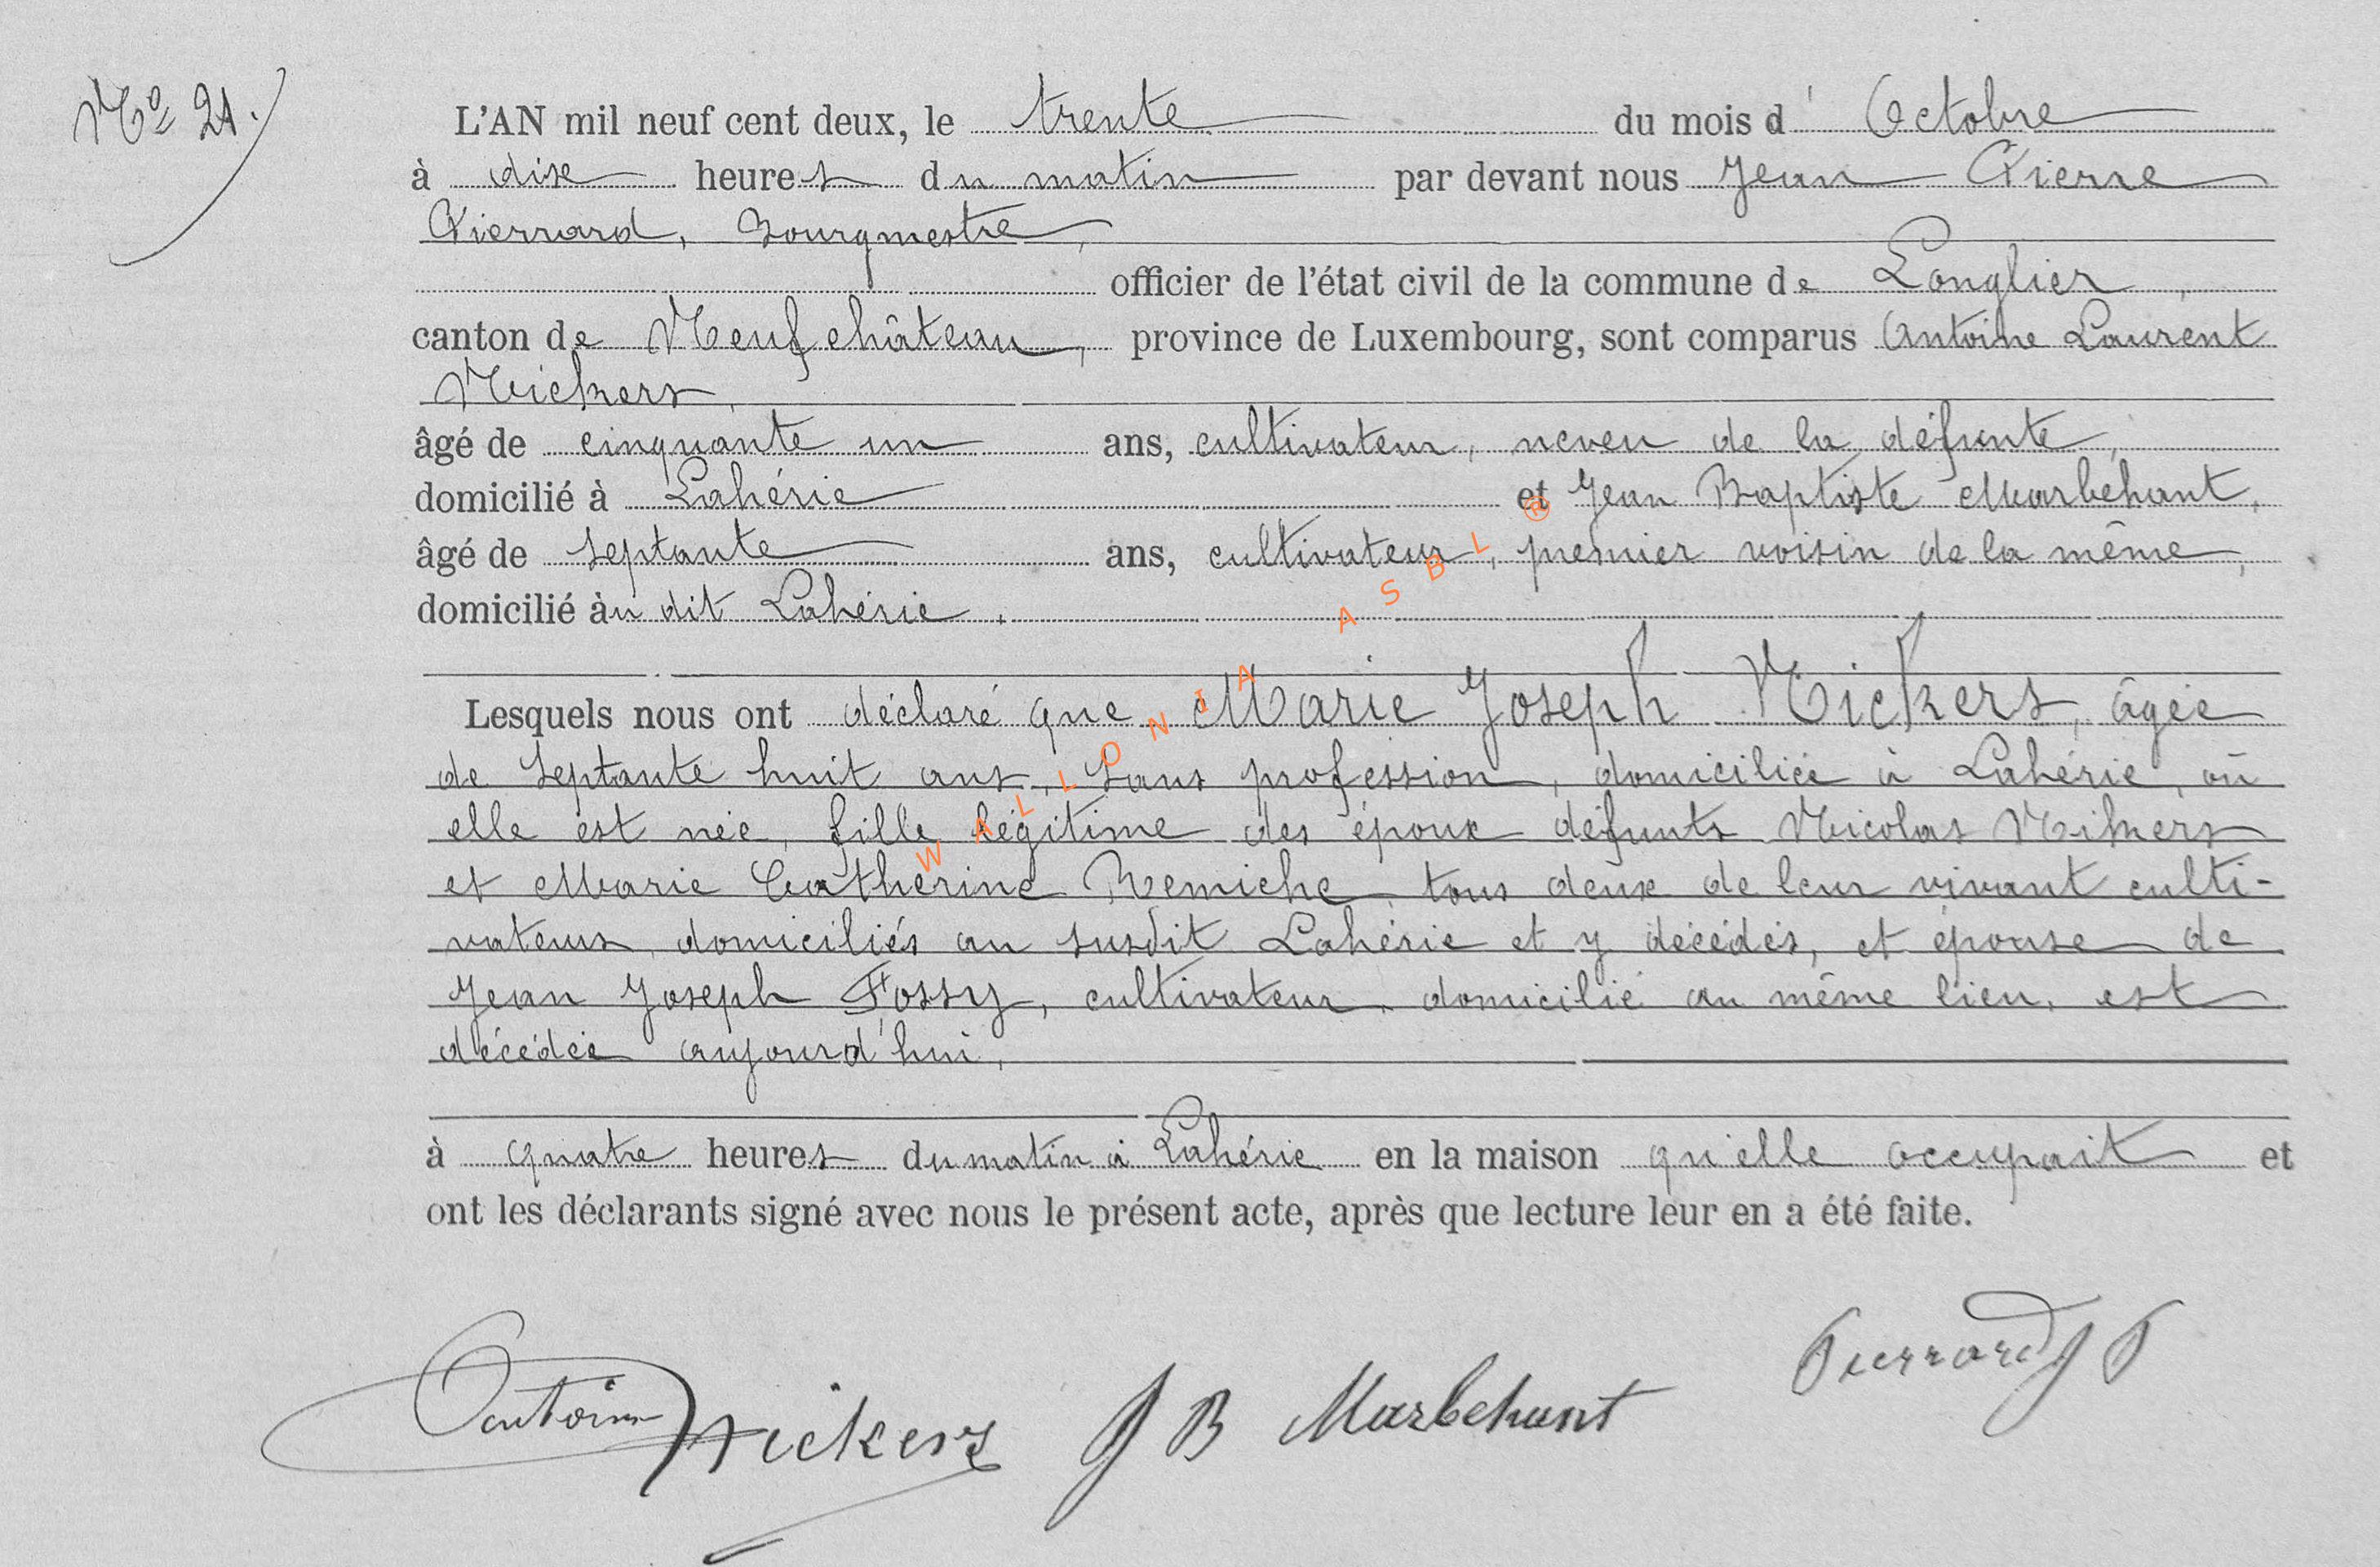 Nº 21.
L'AN mil neuf cent deux, le trente du mois d'Octobre
à dix heures du matin par devant nous Jean Pierre
Pierrard, Bourgmestre,
officier de l'état civil de la commune de Longlier,
canton de Neufchâteau, province de Luxembourg, sont comparus Antoine Laurent
Nickers,
âgé de cinquante un ans, cultivateur, neveu de la défunte,
domicilié à Lahérie et Jean Baptiste Marbehant,
âgé de septante ans, cultivateur, premier voisin de la même,
domicilié àu dit Lahérie.
Lesquels nous ont déclaré que Marie Joseph Nickers, âgée
de septante huit ans, sans profession, domiciliée à Lahérie, où
elle est née, fille légitime des époux défunts Nicolas Nikers
et Marie Catherine Remiche, tous deux de leur vivant culti-
vateurs, domiciliés au susdit Lahérie et y décédés, et épouse de
Jean Joseph Fossy, cultivateur, domicilié au même lieu, est
décédée aujourd'hui,
à quatre heures du matin à Lahérie en la maison qu'elle occupait et
ont les déclarants signé avec nous le présent acte, après que lecture leur en a été faite.
Antoine Nickers J B Marbehant Pierrard J P
WALLONIA ASBL ®